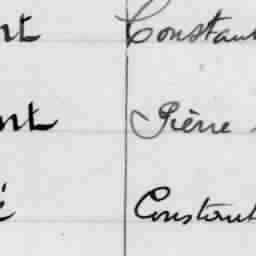 nt Constant
nt Pierre
é Constant